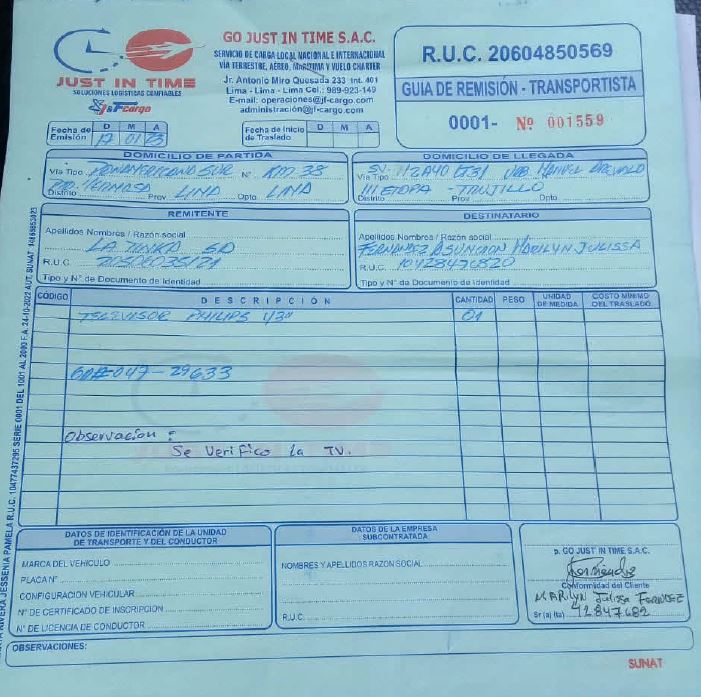 JUST IN TIME
SOLUCIONES LOGÍSTICAS CONFIABLES
J&F cargo
GO JUST IN TIME S.A.C.
SERVICIO DE CARGA LOCAL NACIONAL E INTERNACIONAL
VÍA TERRESTRE, AÉREO, MARÍTIMA Y VUELO CHARTER
Jr. Antonio Miro Quesada 233 Int. 401
Lima - Lima - Lima Cel.: 989-923-149
E-mail: operaciones@jf-cargo.com
administración@jf-cargo.com
R.U.C. 20604850569
GUIA DE REMISIÓN - TRANSPORTISTA
0001- Nº 001559
Fecha de Emisión D M A
17 01 23
Fecha de Inicio de Traslado D M A
DOMICILIO DE PARTIDA
Vía Tipo PANAMERICANA SUR N° KM 38
Distrito Prov. LIMA Dpto. LIMA
DOMICILIO DE LLEGADA
Vía Tipo
III ETAPA - TRUJILLO
Distrito Prov. Dpto.
REMITENTE
Apellidos Nombres / Razón social
LA TINKA SA
R.U.C. 20506035121
Tipo y N° de Documento de Identidad
DESTINATARIO
Apellidos Nombres / Razón social
FERNANDEZ ASUNCION MARILYN JULISSA
R.U.C. 10428476820
Tipo y N° de Documento de Identidad
CÓDIGO DESCRIPCIÓN CANTIDAD PESO UNIDAD DE MEDIDA COSTO MÍNIMO DEL TRASLADO
TELEVISOR PHILIPS 43" 01
047-29633
Observación :
Se Verifico la TV.
DATOS DE IDENTIFICACIÓN DE LA UNIDAD DE TRANSPORTE Y DEL CONDUCTOR
MARCA DEL VEHICULO
PLACA N°
CONFIGURACION VEHICULAR
N° DE CERTIFICADO DE INSCRIPCION
N° DE LICENCIA DE CONDUCTOR
DATOS DE LA EMPRESA SUBCONTRATADA
NOMBRES Y APELLIDOS RAZON SOCIAL
R.U.C.
p. GO JUST IN TIME S.A.C.
Conformidad del Cliente
MARILYN Julissa
Sr (a) (ta) 42847682
OBSERVACIONES:
SUNAT
JESSENIA PAMELA R.U.C. 10477437295 SERIE 0001 DEL 1001 AL 2000 F.A. 24-10-2022 AUT. SUNAT